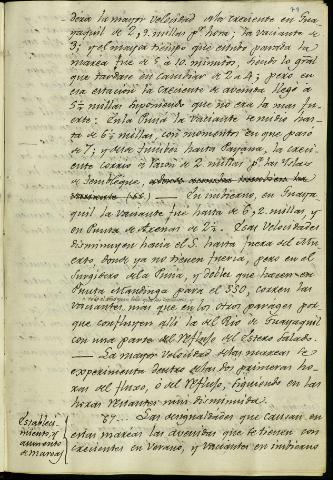 79
dera la mayor velocidad de la creciente en Gua-
yaquil de 2,9 millas pr. hora; la vaciante de
3; y el mayor tiempo que estubo parada la
marea fue de 5 à 10 minutos, siendo lo gral
que tardase en cambiar de 2 a 4; pero en
esta estacion la creciente de avenida llegó à
5½ millas suponiendo que no era la mas fu-
erte. En la Puná la vaciante se midio has-
ta de 6½ millas, con momentos en que pasó
de 7; y desde Jambeli hasta Payana, la creci-
ente corrio à razon de 2 millas pr. los Islas
de Jembleque,
vaciante (66) — En imbierno, en Guaya-
quil la vaciante fue hasta de 6,2 millas, y
en Punta de Arenas de 2½. Esas velocidades
disminuyen hacia el S. hasta fuera del Mu-
erto, donde ya no tienen fuerza, pero en el
surgidero de la Puná, y desde que hacen en
Punta Mandinga para el SSO, corren las
vaciantes mas que en los otros parages por-
que confluyen alli la del Rio de Guayaquil
con una parte del reflujo del Estero Salado.
— La mayor velocidad de las mareas se
experimenta dentro de las dos primeras ho-
ras del fluxo, ó del reflujo, siguiendo en las
horas restantes mui disminuida.
Estableci-
miento, y
aumento
de mareas
67 — Las desigualdades que causan en
estas mareas las avenidas que se tienen con
crecientes en verano, y vaciantes en imbierno